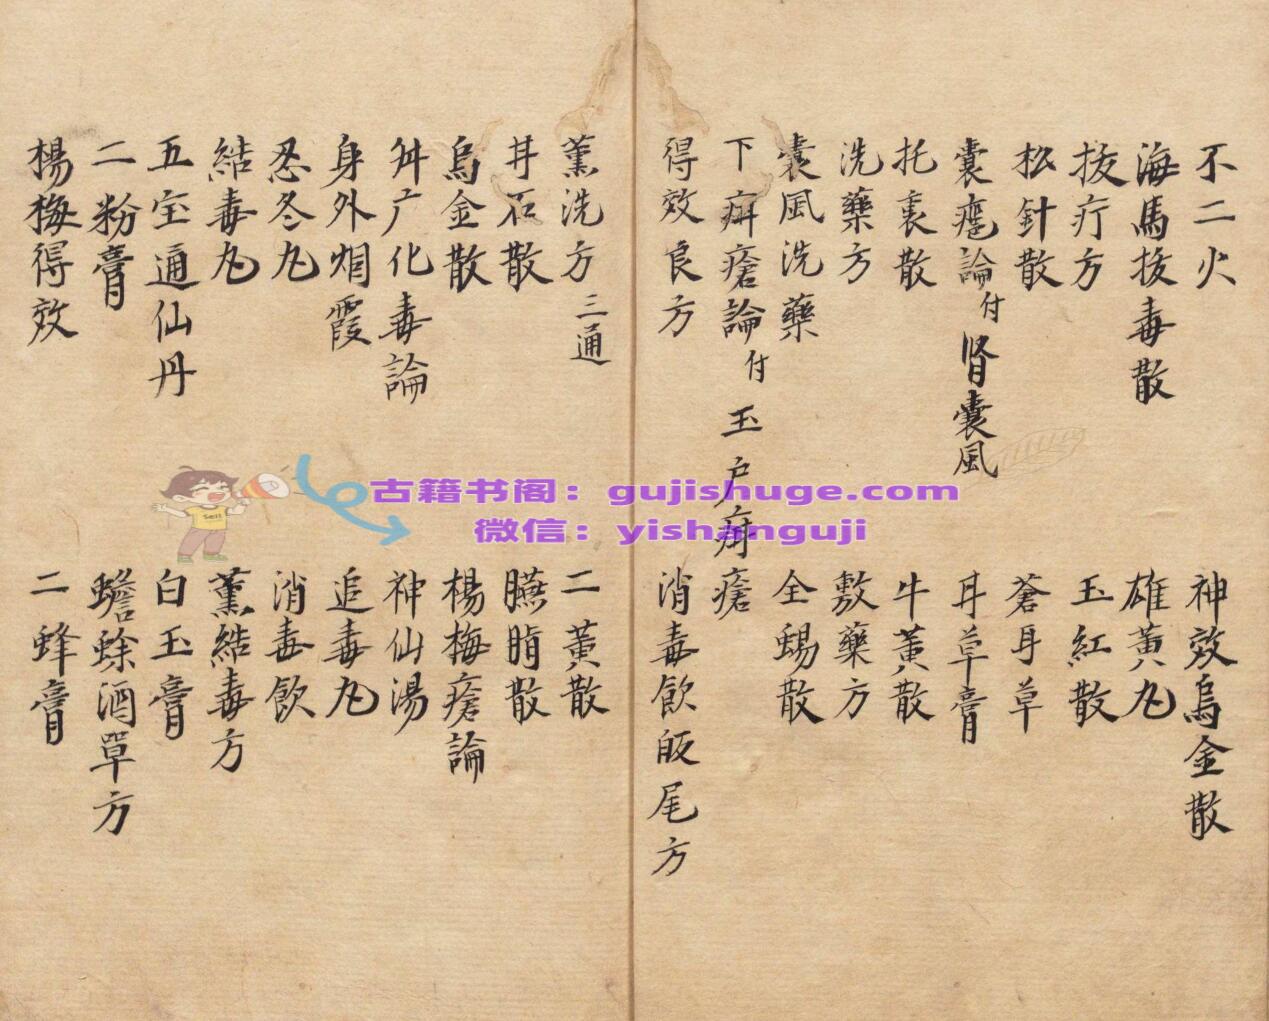 不二火
神效烏金散
海馬拔毒散
雄黃丸
拔疔方
玉紅散
松針散
蒼耳草
囊癰論付腎囊風
耳草膏
托裏散
牛黃散
洗藥方
敷藥方
囊風洗藥
全蝎散
下疳瘡論付玉户疳瘡
得效良方
消毒飲皈尾方
薰洗方三通
二黃散
井石散
烏金散
楊梅瘡論
升广化毒論
神仙湯
身外烟霞
追毒丸
忍冬丸
消毒飲
結毒丸
薰結毒方
五宝通仙丹
白玉膏
二粉膏
蟾蜍酒單方
楊梅得效
二蜂膏
古籍书阁：gujishuge.com
微信：yishanguji